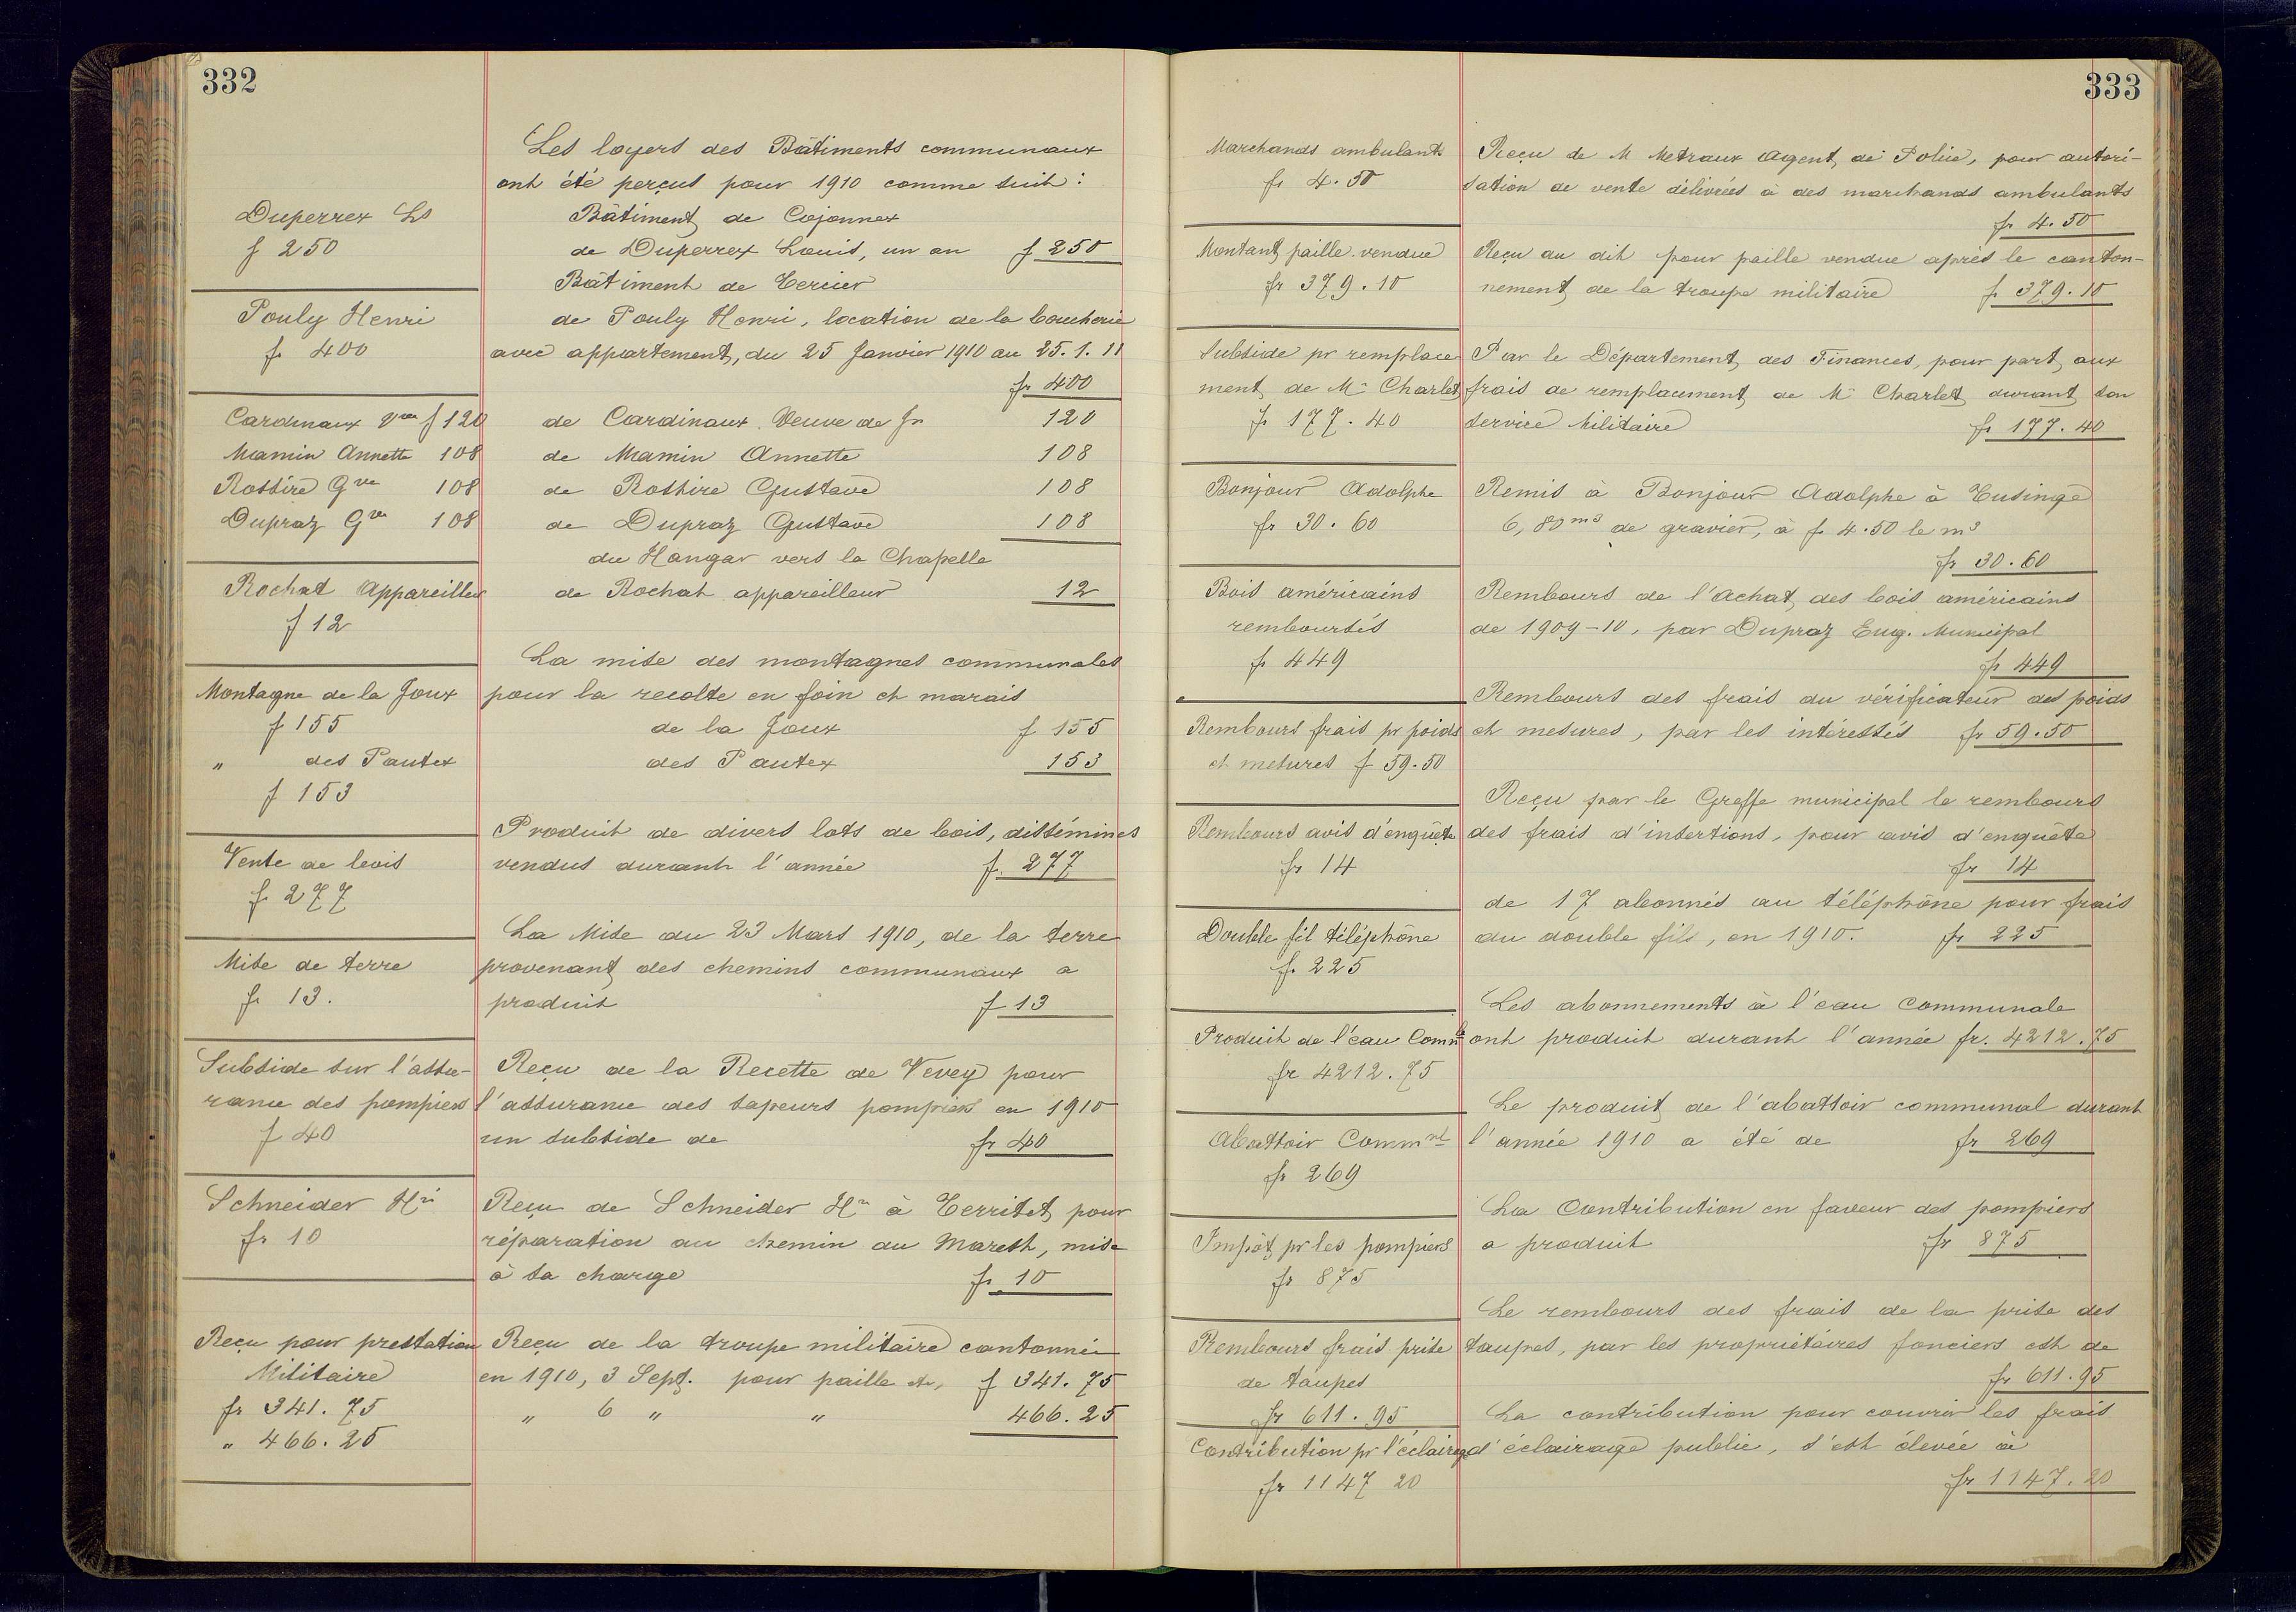 332
Les loyers des Bâtiments communaux
ont été perçus pour 1910 comme suit :
Duperrex Ls
f 250
Bâtiment de Cojonnex
de Duperrex Louis, un an f 250
Bâtiment de Tercier
Pouly Henri
fr 400
de Pouly Henri, location de la boucherie
avec appartement, du 25 Janvier 1910 au 25.1.11
fr 400
Cardinaux Vve f 120
Mamin Annette 108
Rossire Gve 108
Dupraz Gve 108
de Cardinaux Veuve de Jn 120
de Mamin Annette 108
de Rossire Gustave 108
de Dupraz Gustave 108
du Hangar vers la Chapelle
Rochat Appareilleur
f 12
de Rochat appareilleur 12
La mise des montagnes communales
Montagne de la Joux
f 155
" des Pautex
f 153
pour la recolte en foin et marais
de la Joux f 155
des Pautex 153
Produit de divers lots de bois, dissémines
Vente de bois
f. 277
vendus durant l'année f. 277
La Mise du 23 Mars 1910, de la terre
Mise de terre
fr 13.
provenant des chemins communaux a
produit f 13
Subside sur l'assu-
rance des pompiers
f 40
Reçu de la Recette de Vevey pour
l'assurance des sapeurs pompiers en 1910
un subside de fr 40
Schneider Hri
fr 10
Reçu de Schneider Hri à Territet pour
réparation au chemin du Mareth, mise
à sa charge fr 10
Reçu pour prestation
Militaire
fr 341.75
" 466.25
Reçu de la troupe militaire cantonnée
en 1910, 3 Sept. pour paille etc, f 341.75
" 6 " " 466.25
333
Marchands ambulants
fr 4.50
Reçu de M Metraux Agent de Police, pour autori-
sation de vente délivrées à des marchands ambulants
fr 4.50
Montant paille vendue
fr 379.10
Reçu du dit pour paille vendue après le canton-
nement de la troupe militaire f. 379.10
Subside pr remplace
ment de Mr Charlet
fr 177.40
Par le Département des Finances, pour part aux
frais de remplacement de Mr Charlet durant son
service Militaire fr 177.40
Bonjour Adolphe
fr 30.60
Remis à Bonjour Adolphe à Tusinge
6,80 m3 de gravier, à f 4.50 le m3
fr 30.60
Bois américains
remboursés
fr 449
Rembours de l'Achat des bois américains
de 1909-10, par Dupraz Eug. Municipal
fr 449
Rembours frais pr poids
et mesures f 59.50
Rembours des frais du vérificateur des poids
et mesures, par les intéressés fr 59.50
Rembours avis d'enquête
fr 14
Reçu par le Greffe municipal le rembours
des frais d'insertions, pour avis d'enquête
fr 14
Double fil téléphone
f. 225
de 17 abonnés au téléphone pour frais
du double fils, en 1910. fr 225
Produit de l'eau Comnle
fr 4212.75
Les abonnements à l'eau Communale
ont produit durant l'année fr. 4212.75
Abattoir Commnl
fr 269
Le produit de l'abattoir communal durant
l'année 1910 a été de fr 269
Impôt pr les pompiers
fr 875
La Contribution en faveur des pompiers
a produit fr 875
Rembours frais prise
de taupes
fr 611.95
Le rembours des frais de la prise des
taupes, par les propriétaires fonciers est de
fr 611.95
Contribution pr l'éclairage
fr 1147 20
La contribution pour couvrir les frais
d'éclairage public, s'est élevée à
fr 1147.20